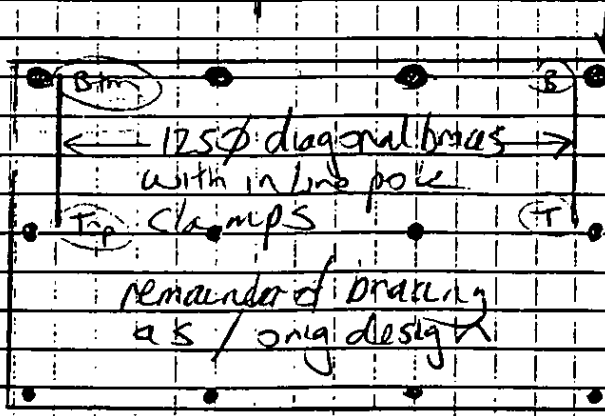 Btm B
125φ diagonal braces
with inline pole
Top clamps T
remainder of bracing
as / orig design